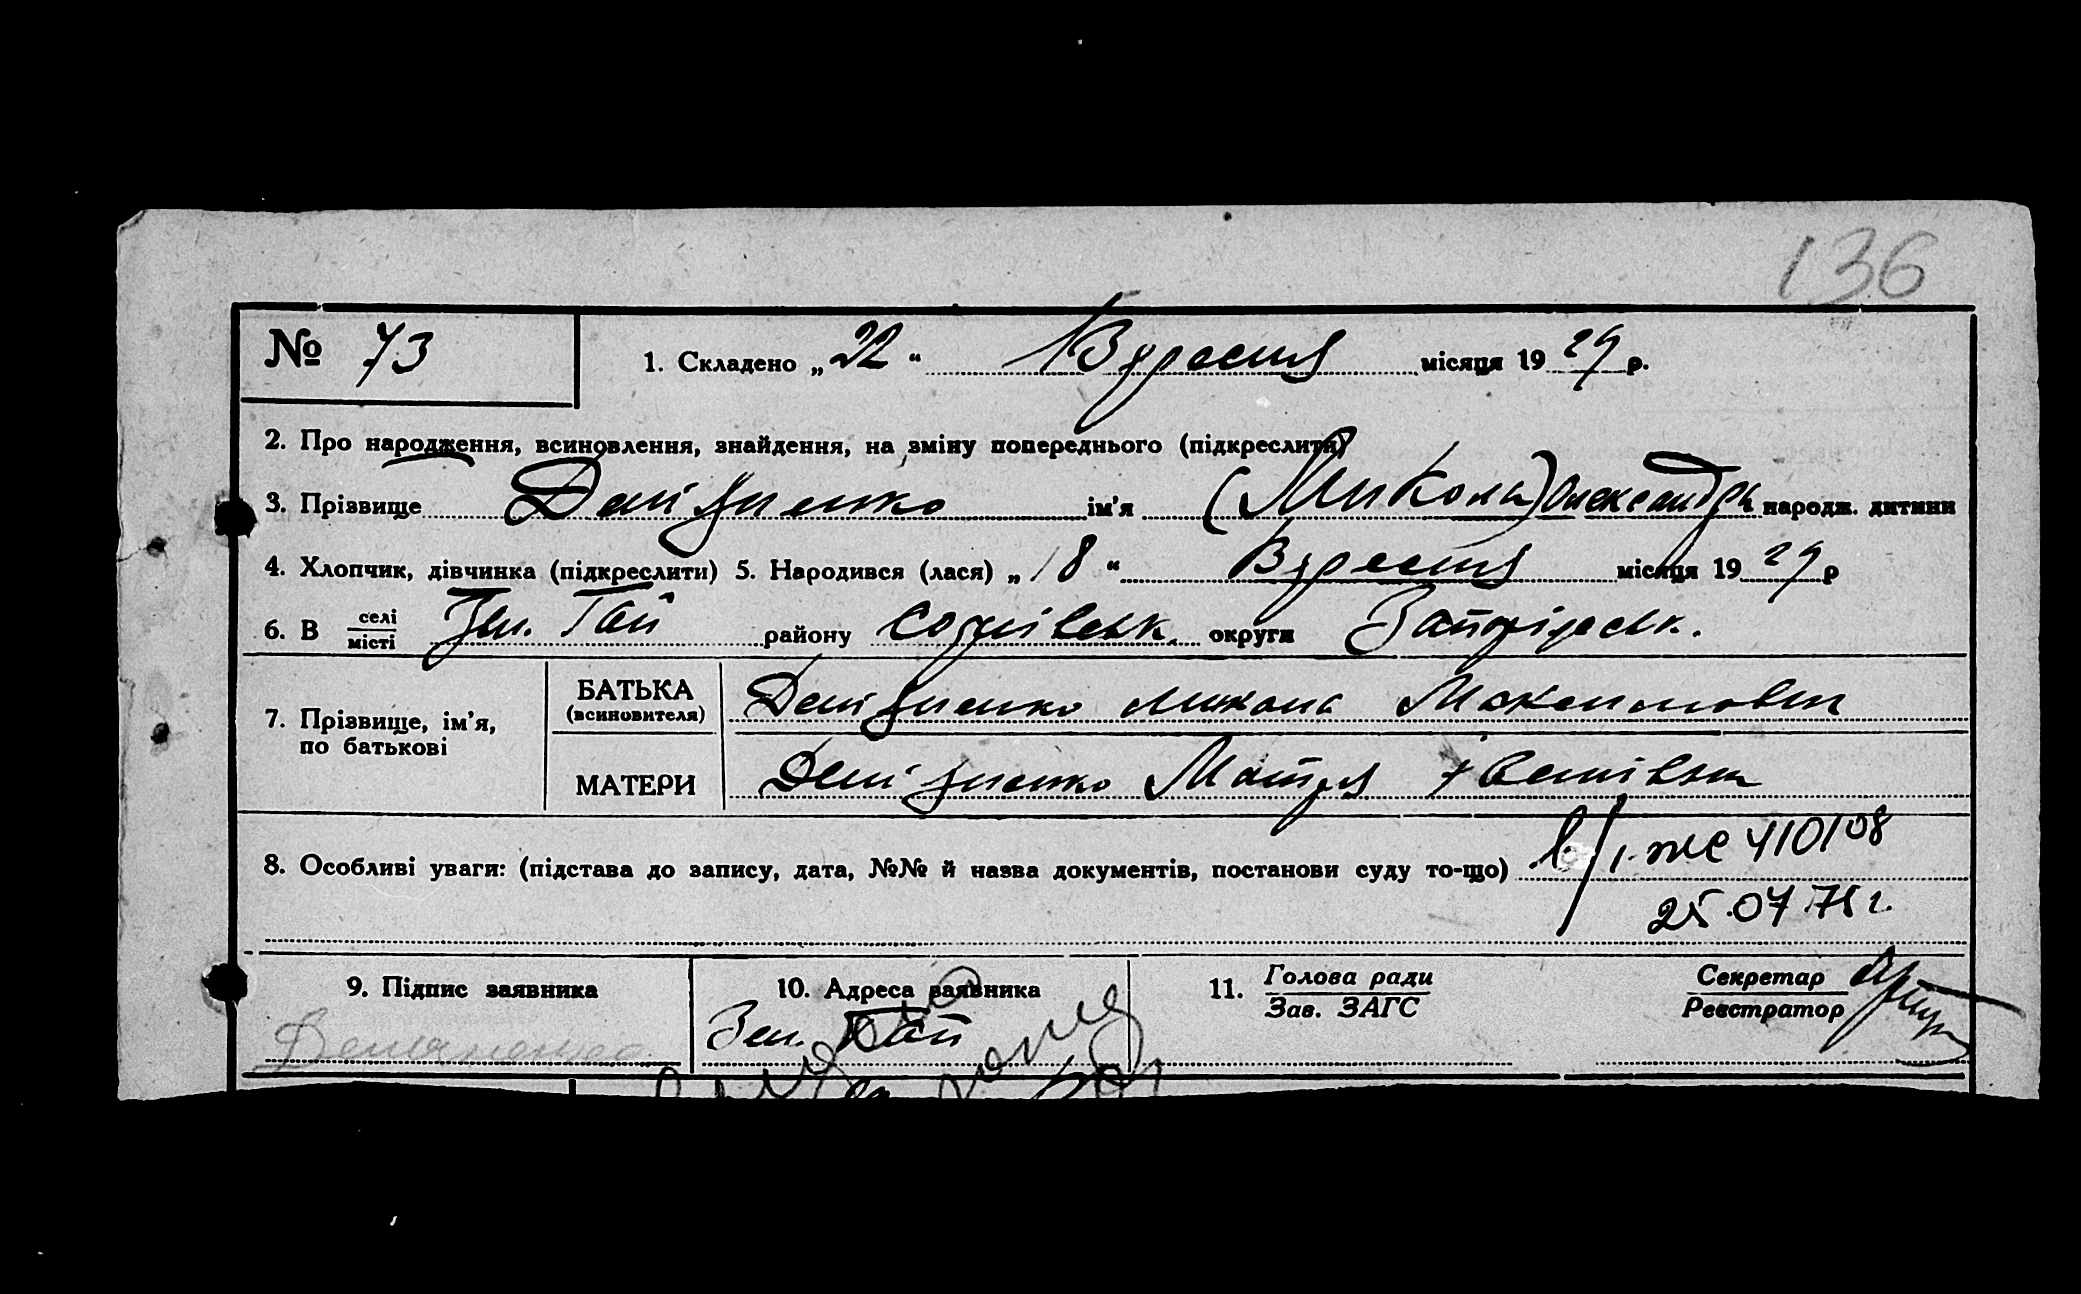 136
№ 73
1. Складено „22“ Вересня місяця 1929 р.
2. Про народження, всиновлення, знайдення, на зміну попереднього (підкреслити)
3. Прізвище ім'я (Микола) Олександр народж. дитини
4. Хлопчик, дівчинка (підкреслити) 5. Народився (лася) „18“ Вересня місяця 1929 р
6. В селі місті Зел. Гай району округи Запорізськ.
7. Прізвище, ім'я, по батькові
БАТЬКА (всиновителя) Микола Максимович
МАТЕРИ Мотря Іванівна
8. Особливі уваги: (підстава до запису, дата, №№ й назва документів, постанови суду то-що)
25.07.75 г.
9. Підпис заявника
10. Адреса заявника
Зел. Гай
11. Голова ради
Зав. ЗАГС
Секретар
Реєстратор